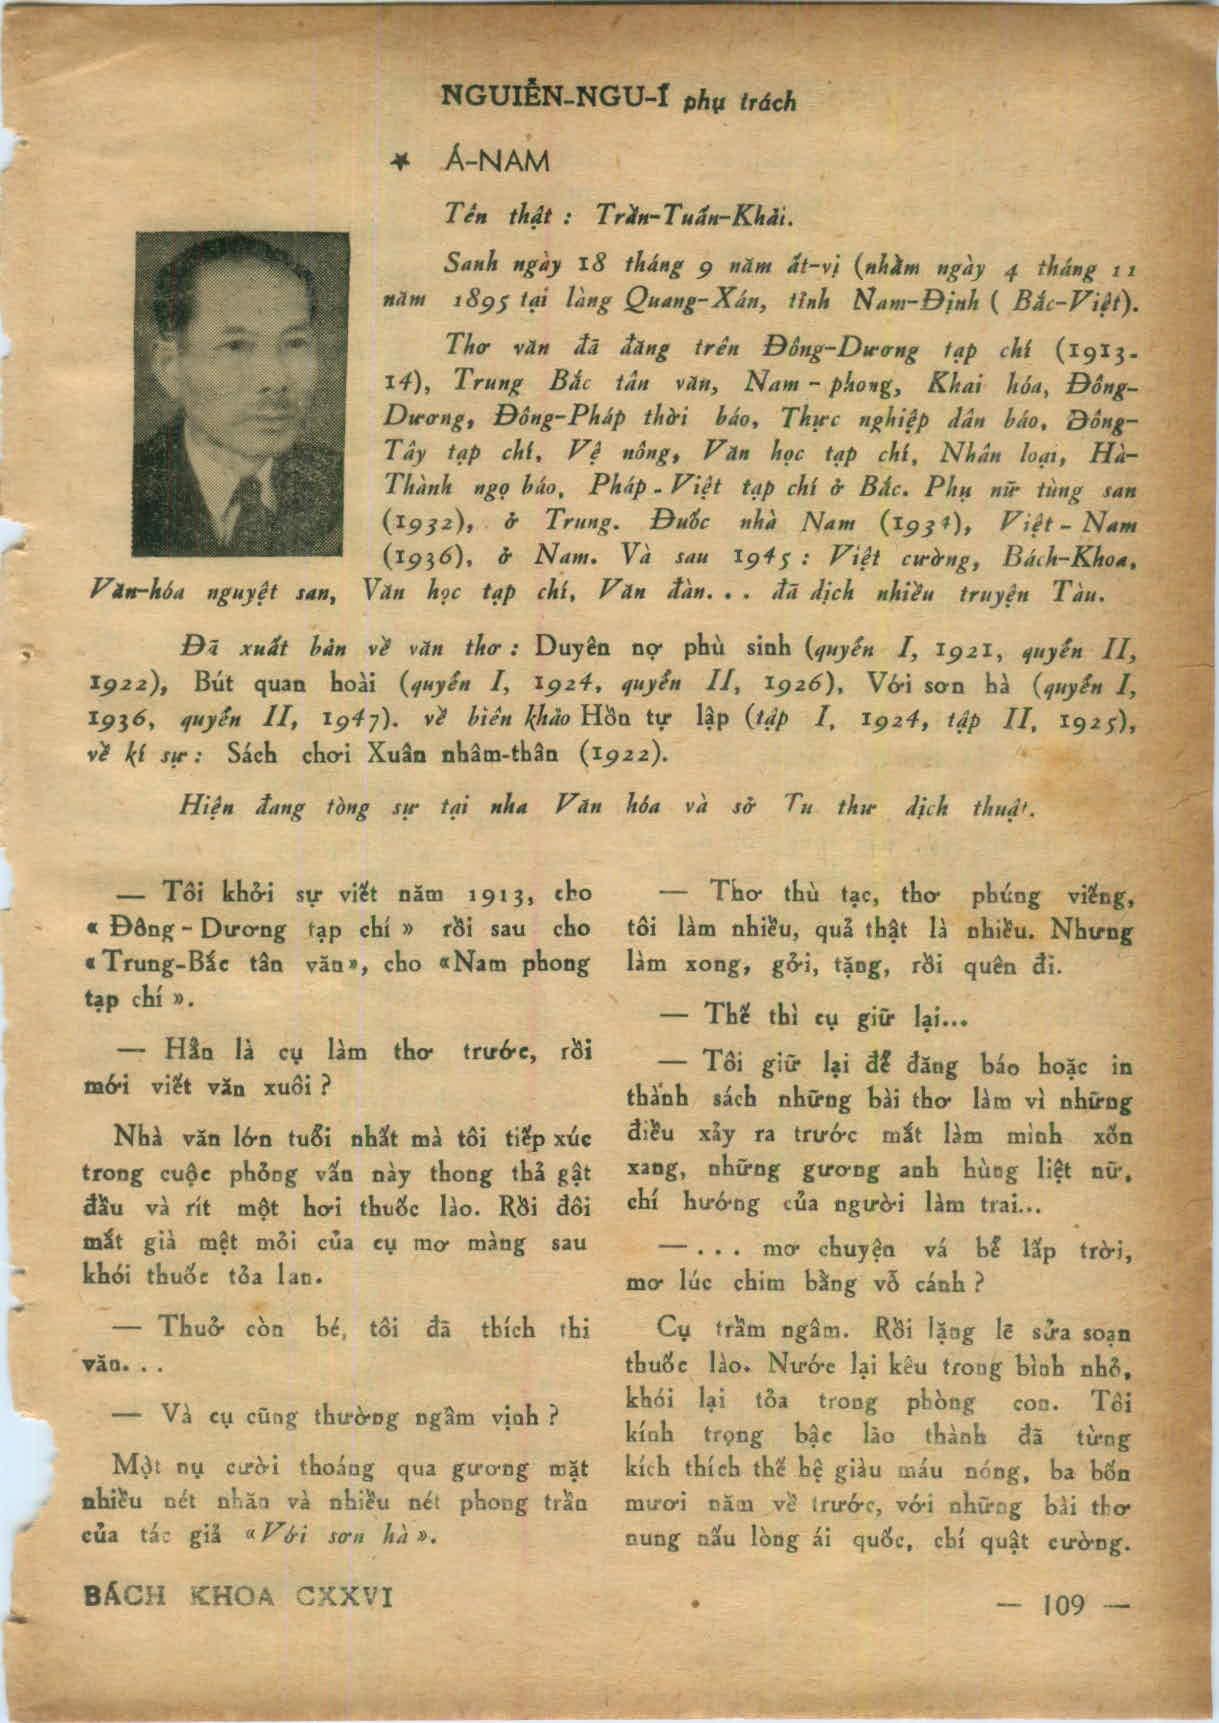 NGUIỄN-NGU-Í phụ trách
★ Á-NAM
Tên thật : Trần-Tuấn-Khải.
Sanh ngày 18 tháng 9 năm ất-vị (nhằm ngày 4 tháng 11
năm 1895 tại làng Quang-Xán, tỉnh Nam-Định ( Bắc-Việt).
Thơ văn đã đăng trên Đông-Dương tạp chí (1913-
14), Trung Bắc tân văn, Nam - phong, Khai hóa, Đông-
Dương, Đông-Pháp thời báo, Thực nghiệp dân báo, Đông-
Tây tạp chí, Vệ nông, Văn học tạp chí, Nhân loại, Hà-
Thành ngọ báo, Pháp - Việt tạp chí ở Bắc. Phụ nữ tùng san
(1932), ở Trung. Đuốc nhà Nam (1934), Việt - Nam
(1936), ở Nam. Và sau 1945 : Việt cường, Bách-Khoa,
Văn-hóa nguyệt san, Văn học tạp chí, Văn đàn. . . đã dịch nhiều truyện Tàu.
Đã xuất bản về văn thơ : Duyên nợ phù sinh (quyển I, 1921, quyển II,
1922), Bút quan hoài (quyển I, 1924, quyển II, 1926), Với sơn hà (quyển I,
1936, quyển II, 1947). về biên khảo Hồn tự lập (tập I, 1924, tập II, 1925),
về kí sự : Sách chơi Xuân nhâm-thân (1922).
Hiện đang tòng sự tại nha Văn hóa và sở Tu thư dịch thuật.
— Tôi khởi sự viết năm 1913, cho
« Đông - Dương tạp chí » rồi sau cho
« Trung-Bắc tân văn», cho «Nam phong
tạp chí ».
— Hẳn là cụ làm thơ trước, rồi
mới viết văn xuôi ?
Nhà văn lớn tuổi nhất mà tôi tiếp xúc
trong cuộc phỏng vấn này thong thả gật
đầu và rít một hơi thuốc lào. Rồi đôi
mắt già mệt mỏi của cụ mơ màng sau
khói thuốc tỏa lan.
— Thuở còn bé, tôi đã thích thi
văn. . .
— Và cụ cũng thường ngâm vịnh ?
Một nụ cười thoáng qua gương mặt
nhiều nét nhăn và nhiều nét phong trần
của tác giả « Với sơn hà ».
— Thơ thù tạc, thơ phúng viếng,
tôi làm nhiều, quả thật là nhiều. Nhưng
làm xong, gởi, tặng, rồi quên đi.
— Thế thì cụ giữ lại...
— Tôi giữ lại để đăng báo hoặc in
thành sách những bài thơ làm vì những
điều xảy ra trước mắt làm mình xốn
xang, những gương anh hùng liệt nữ,
chí hướng của người làm trai...
— . . . mơ chuyện vá bể lấp trời,
mơ lúc chim bằng vỗ cánh ?
Cụ trầm ngâm. Rồi lặng lẽ sửa soạn
thuốc lào. Nước lại kêu trong bình nhỏ,
khói lại tỏa trong phòng con. Tôi
kính trọng bậc lão thành đã từng
kích thích thế hệ giàu máu nóng, ba bốn
mươi năm về trước, với những bài thơ
nung nấu lòng ái quốc, chí quật cường.
BÁCH KHOA CXXVI
— 109 —